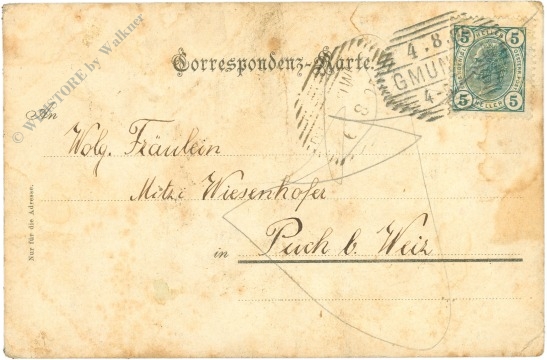 Correspondenz-Karte.
5 HELLER 5
4.8.
GMUN
5 HELLER 5
An
Wolg. Fräulein
Mitzi Wiesenhofer
in Puch b. Weiz
Nur für die Adresse.
© WEBSTORE by Walkner